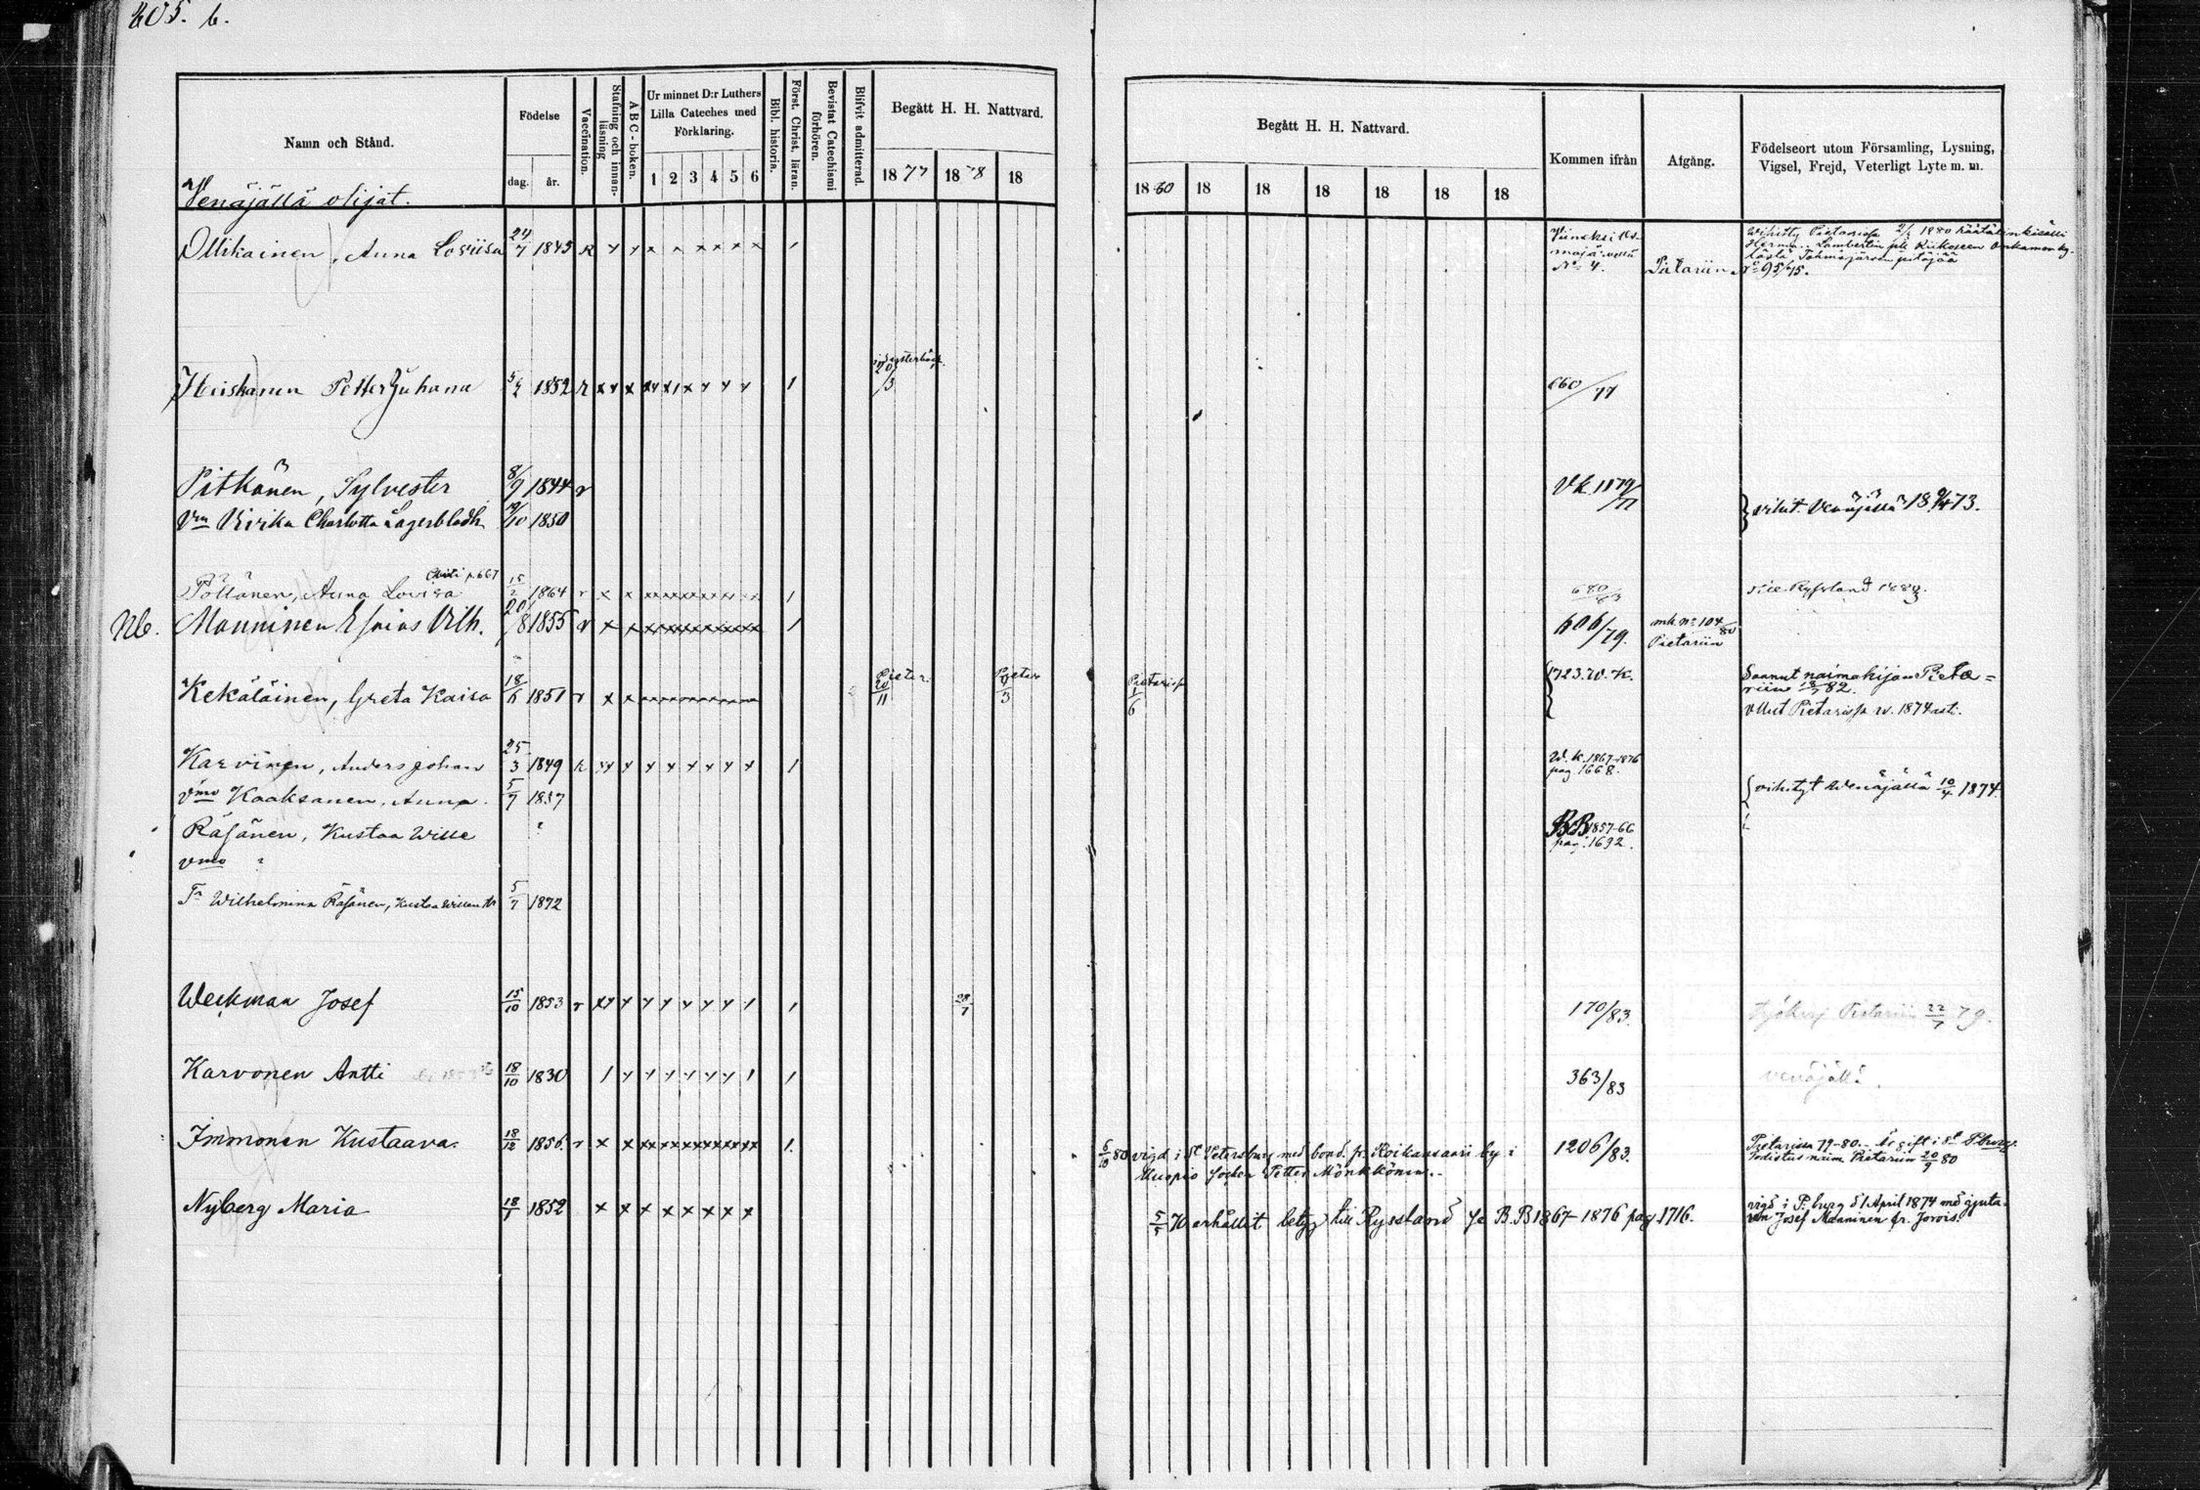 605. b.
Namn och Stånd.
Födelse
dag. år.
Vaccination.
Stafning och innanläsning
ABC-boken.
Ur minnet D:r Luthers Lilla Cateches med Förklaring.
1 2 3 4 5 6
Bibl. historia.
Först. Christ. läran.
Bevistat Catechismi förhören.
Blifvit admitterad.
Begått H. H. Nattvard.
1877 1878 18
Begått H. H. Nattvard.
1880 18 18 18 18 18 18
Kommen ifrån
Afgång.
Födelseort utom Församling, Lysning, Vigsel, Frejd, Veterligt Lyte m. m.
Venäjällä olijat.
Ollikainen, Anna Loviisa 24/7 1845
N:o 4.
Pietariin
Wihitty Pietarissa 1880
Tohmajärven pitäjää
N:o 95/75.
Heiskanen Petter Juhana 5/2 1852 r
20/3
660/77
Pitkänen, Sylvester 8/9 1844 r
Vk 1579/77
Vm Virika Charlotta Lagerbladh 19/10 1850
vihit. Venäjällä 1873.
Pöllänen, Anna Lovisa 15/2 1864 r
680/83
Ryssland 1883.
Nb. Manninen Esaias Vilh. 20/8 1855 r
606/79.
mk n:o 104/80
Pietariin
Kekäläinen, Greta Kaisa 18/6 1851 r
Pietar. 20/11
Pietar 9/3
Pietarissa 1/6
1723. W. K.
Saanut naimakirjan Pietariin 82.
ollut Pietarissa v. 1874 asti.
Karvinen, Anders Johan 25/3 1849
W. K. 1867-1876
pag 1668.
vmo Kaaksanen, Anna. 5/7 1837
vihityt Wenäjällä 10/4 1874.
Räsänen, Kustaa Wille ?
BB 1857-66
pag. 1692.
vmo ?
Tr Wilhelmina Räsänen, Kustaa Willen tr 5/7 1872
Weckman Josef 15/10 1853 r
28/7
170/83.
Pietariin 22/7 79.
Karvonen Antti 18/10 1830
363/83
venäjällä.
Immonen Kustaava. 18/12 1856. r
6/10 80 vigd i St Petersburg med bond. fr. Koikansaari by i
Kuopio socken Petter Mönkkönen.
1206/83.
Pietarissa 79-80. Är gift i St Pburg.
Todistus naim. Pietariin 20/9 80
Nyberg Maria 18/1 1852
5/5 70 erhållit betyg till Ryssland Se B.B 1867-1876 pag 1716.
vigd i P:burg d 1 April 1874 med gjutaren Josef Manninen fr. Jorois.